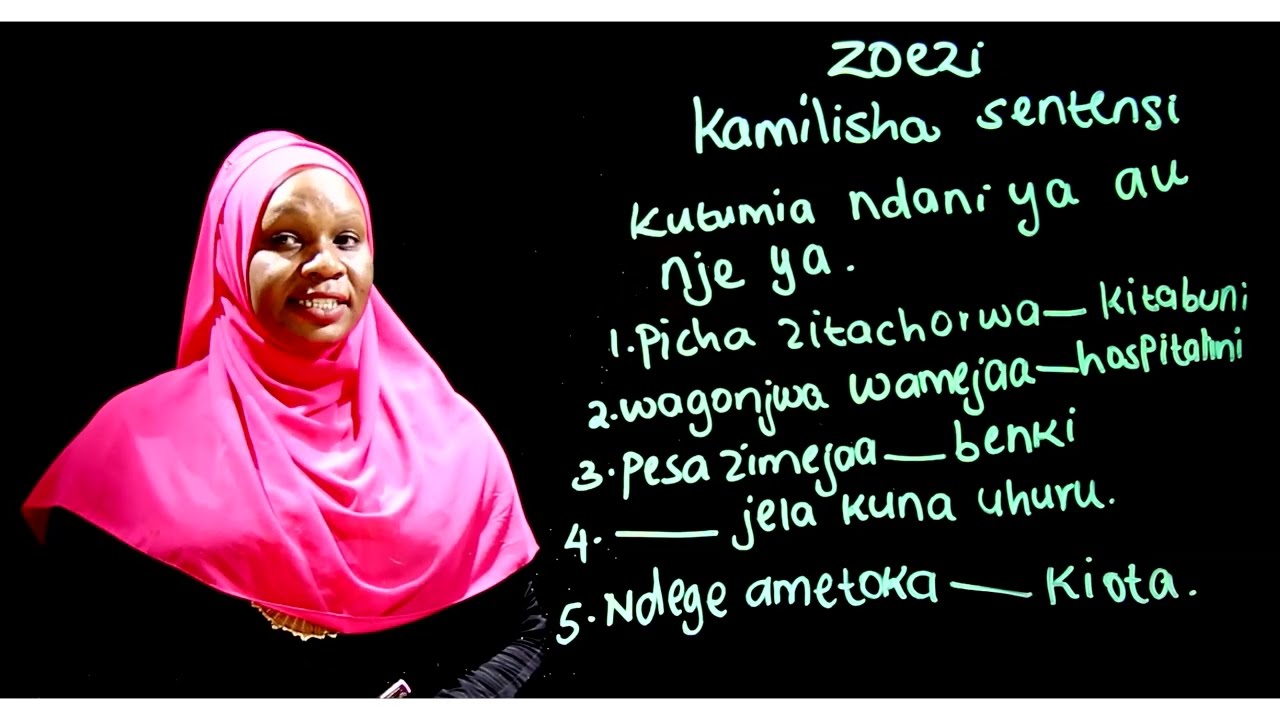 zoezi
Kamilisha sentensi
Kutumia ndani ya au
nje ya.
1. Picha zitachorwa — kitabuni
2. wagonjwa wamejaa — hospitalini
3. Pesa zimejaa — benki
4. — jela kuna uhuru.
5. Ndege ametoka — kiota.